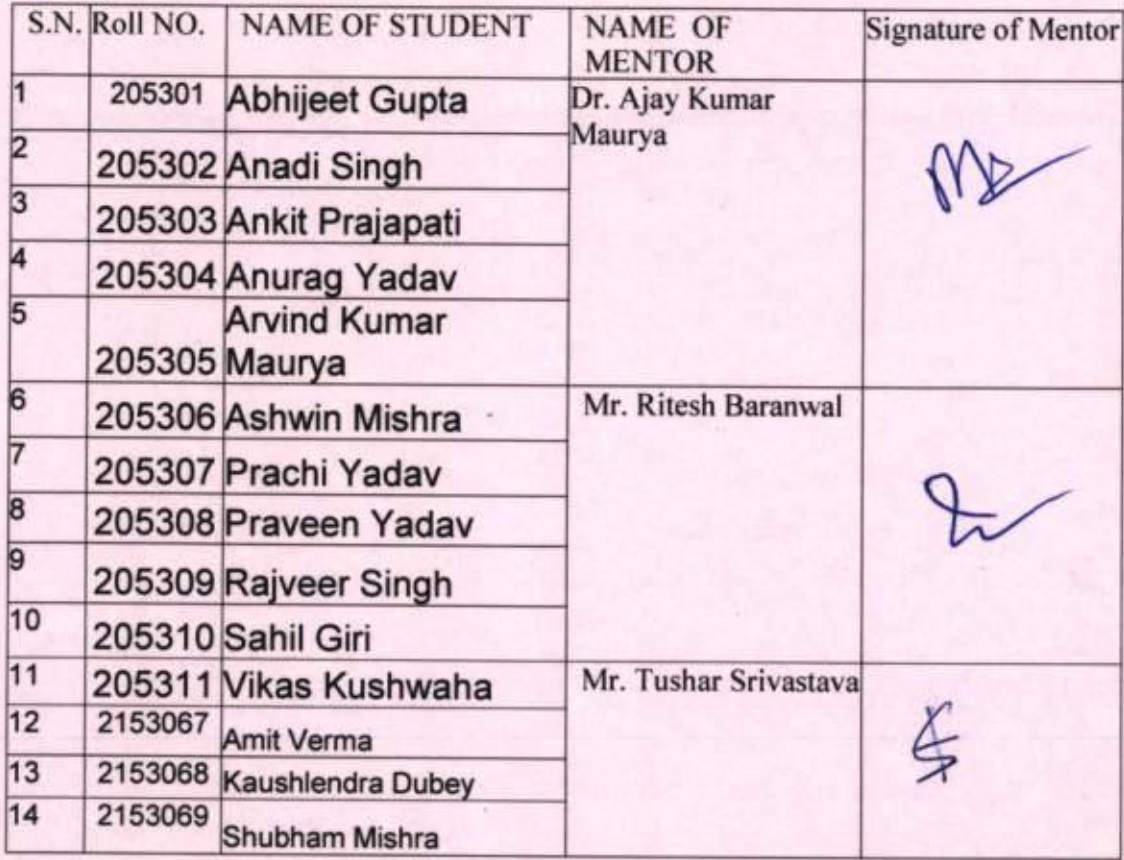 S.N. Roll NO. NAME OF STUDENT NAME OF MENTOR Signature of Mentor
1 205301 Abhijeet Gupta Dr. Ajay Kumar Maurya
2 205302 Anadi Singh
3 205303 Ankit Prajapati
4 205304 Anurag Yadav
5 205305 Arvind Kumar Maurya
6 205306 Ashwin Mishra Mr. Ritesh Baranwal
7 205307 Prachi Yadav
8 205308 Praveen Yadav
9 205309 Rajveer Singh
10 205310 Sahil Giri
11 205311 Vikas Kushwaha Mr. Tushar Srivastava
12 2153067 Amit Verma
13 2153068 Kaushlendra Dubey
14 2153069 Shubham Mishra